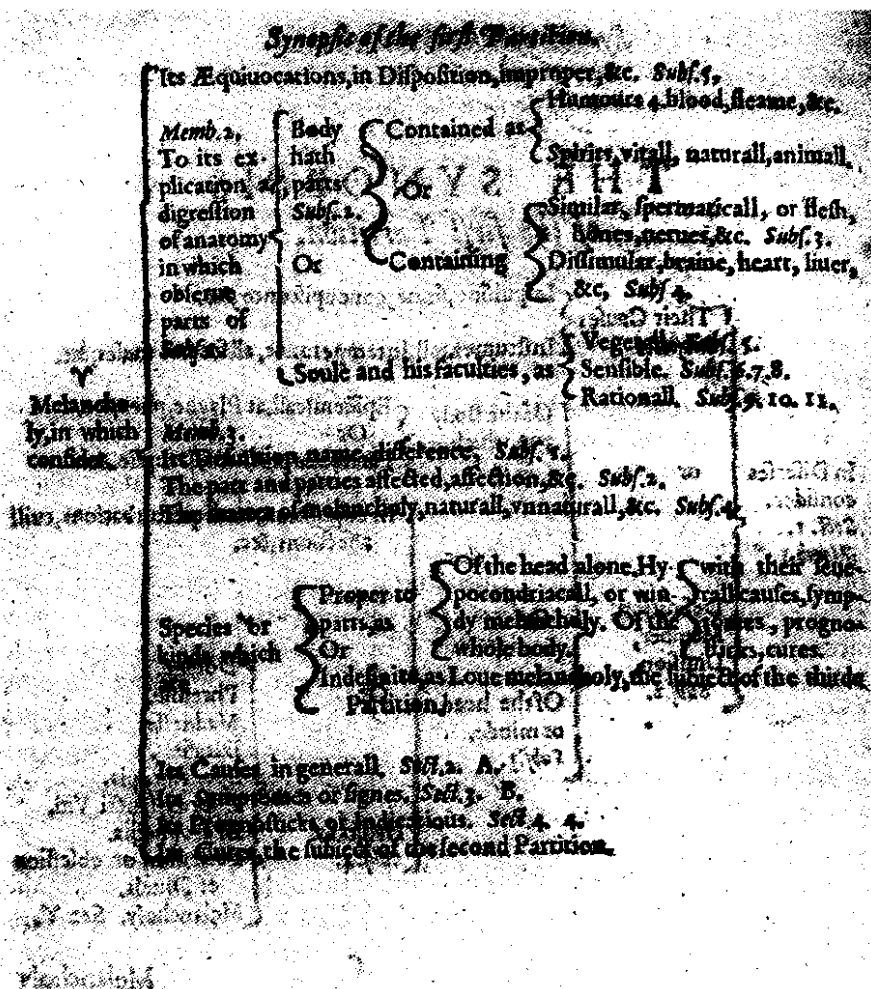 Synopsis of the first Partition.
Its Æquiuocations, in Disposition, improper, &c. Subs. 5.
Memb. 2.
To its ex-
plication, a
digression
of anatomy
in which
obserue
parts of
Body
hath
parts
Subs. 2.
Or
Contained as
Or
Containing
Humours 4. blood, fleame, &c.
Spirits, vitall, naturall, animall.
Similar, spermaticall, or flesh,
bones, nerues, &c. Subs. 3.
Dissimular, braine, heart, liuer,
&c, Subs 4.
Soule and his faculties, as
Vegetall. Subs. 5.
Sensible. Subs. 6. 7. 8.
Rationall. Subs. 9. 10. 11.
Melancho-
ly, in which
consider.
Memb. 3.
Its Definition, name, difference, Subs. 1.
The part and parties affected, affection, &c. Subs. 2.
The matter of melancholy, naturall, vnnaturall, &c. Subs. 4.
Species or
kinds which
are
Proper to
parts, as
Or
Of the head alone, Hy-
pocondriacall, or win-
dy melancholy. Of the
whole body.
with their seue-
rall causes, symp-
tomes, progno-
sticks, cures.
Indefinite, as Loue melancholy, the subiect of the third
Partition.
Its Causes in generall. Sect. 2. A.
Its Symptomes or signes. Sect. 3. B.
Its Prognosticks or Indications. Sect. 4. 4.
Its Cures, the subiect of the second Partition.